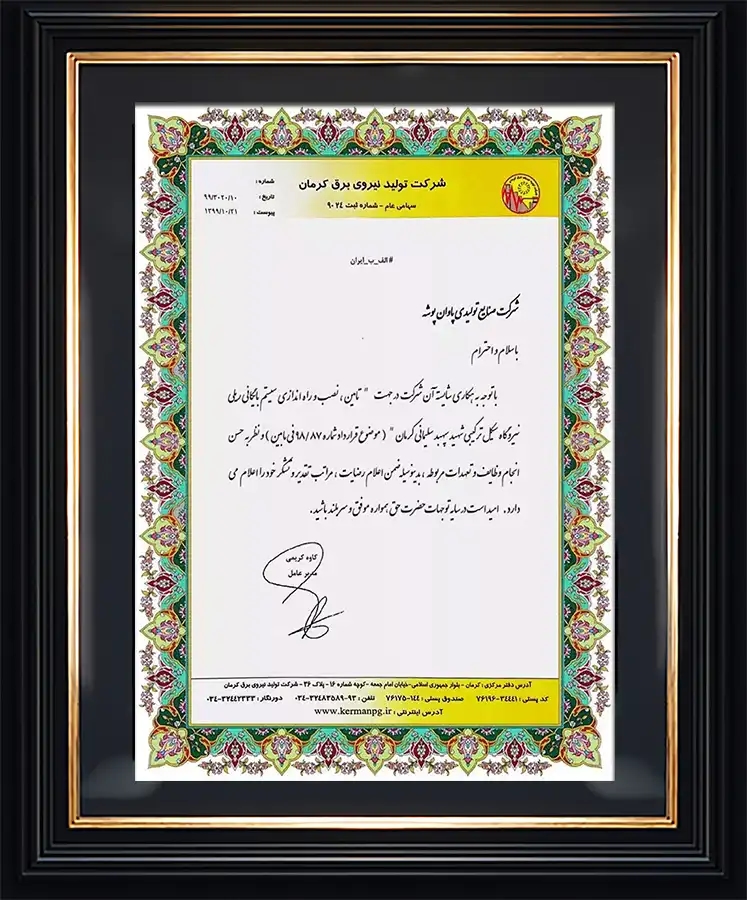 شرکت تولید نیروی برق کرمان
سهامی عام - شماره ثبت ۹۰۲۴
شماره :
تاریخ : ۹۹/۳۰۲۰/۱۰
پیوست : ۱۳۹۹/۱۰/۲۱
#الف_ب_ایران
شرکت صنایع تولیدی پاوان پوشه
با سلام و احترام
با توجه به همکاری شایسته آن شرکت در جهت " تامین ، نصب و راه اندازی سیستم بایگانی ریلی
نیروگاه سیکل ترکیبی شهید سپهبد سلیمانی کرمان " ( موضوع قرارداد شماره ۹۸/۸۷ فی مابین ) و نظر به حسن
انجام وظایف و تعهدات مربوطه ، بدینوسیله ضمن اعلام رضایت ، مراتب تقدیر و تشکر خود را اعلام می
دارد . امید است در سایه توجهات حضرت حق همواره موفق و سربلند باشید .
کاوه کریمی
مدیر عامل
آدرس دفتر مرکزی : کرمان - بلوار جمهوری اسلامی-خیابان امام جمعه -کوچه شماره ۱۶ - پلاک ۲۶ - شرکت تولید نیروی برق کرمان
کد پستی : ۷۶۱۹۶-۳۴۴۴۱ صندوق پستی : ۷۶۱۷۵-۱۴۴ تلفن : ۹۳-۳۲۴۸۳۵۸۹-۰۳۴ دورنگار : ۳۲۴۴۲۳۳۳-۰۳۴
آدرس اینترنتی : www.kermanpg.ir